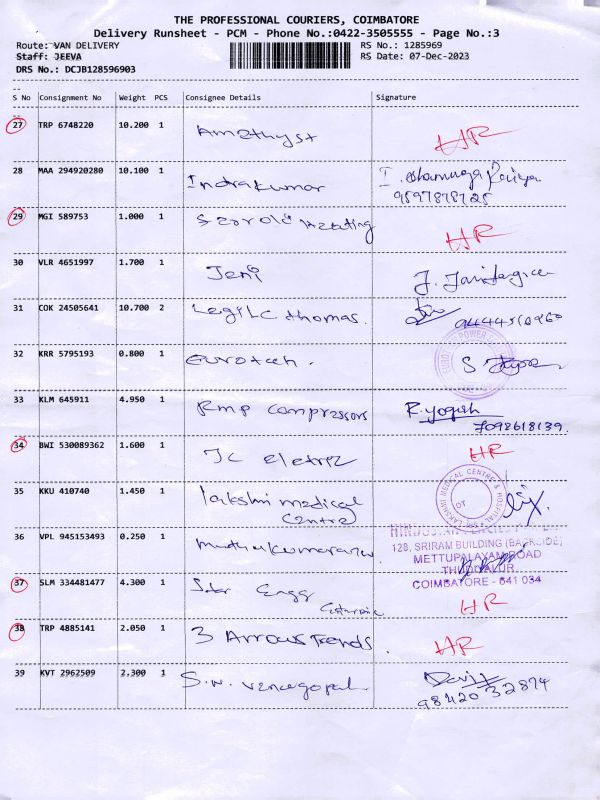 THE PROFESSIONAL COURIERS, COIMBATORE
Delivery Runsheet - PCM - Phone No.:0422-3505555 - Page No.:3
Route: VAN DELIVERY RS No.: 1285969
Staff: JEEVA RS Date: 07-Dec-2023
DRS No.: DCJB128596903
S No Consignment No Weight PCS Consignee Details Signature
27 TRP 6748220 10.200 1 Amethyst HR
28 MAA 294920280 10.100 1 Indrakumar
29 MGI 589753 1.000 1 HR
30 VLR 4651997 1.700 1 Jeni
31 COK 24505641 10.700 2 thomas.
32 KRR 5795193 0.800 1 Eurotech.
33 KLM 645911 4.950 1 Rmp Compressors R. yogesh
7098618139.
34 BWI 530089362 1.600 1 JC HR
35 KKU 410740 1.450 1 lakshmi medical
Centre
LAKSHMI MEDICAL CENTRE & HOSPITAL
36 VPL 945153493 0.250 1
128, SRIRAM BUILDING (BACKSIDE)
METTUPALAYAM ROAD
THUDIALUR,
COIMBATORE - 641 034
37 SLM 334481477 4.300 1 Engg HR
38 TRP 4885141 2.050 1 3 Arrows Trends. HR
39 KVT 2962509 2.300 1 S.N. Venugopal
98420 32874